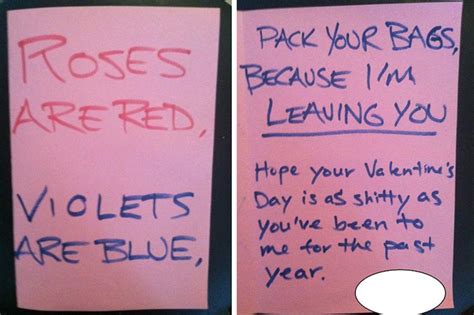 ROSES
ARE RED,
VIOLETS
ARE BLUE,
PACK YOUR BAGS,
BECAUSE I'M
LEAVING YOU
Hope your Valentine's
Day is as shitty as
you've been to
me for the past
year.